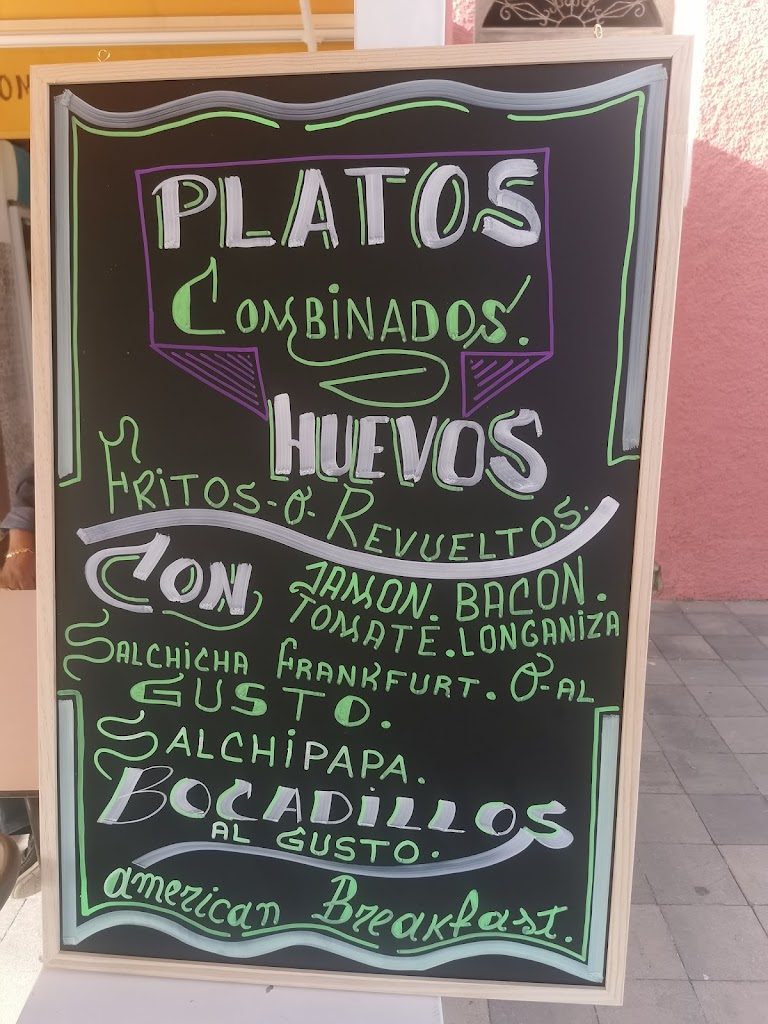 PLATOS
COMBINADOS.
HUEVOS
FRITOS-O-REVUELTOS.
CON JAMON. BACON.
TOMATE. LONGANIZA
SALCHICHA FRANKFURT. O-AL
GUSTO.
SALCHIPAPA.
BOCADILLOS
AL GUSTO.
american Breakfast.